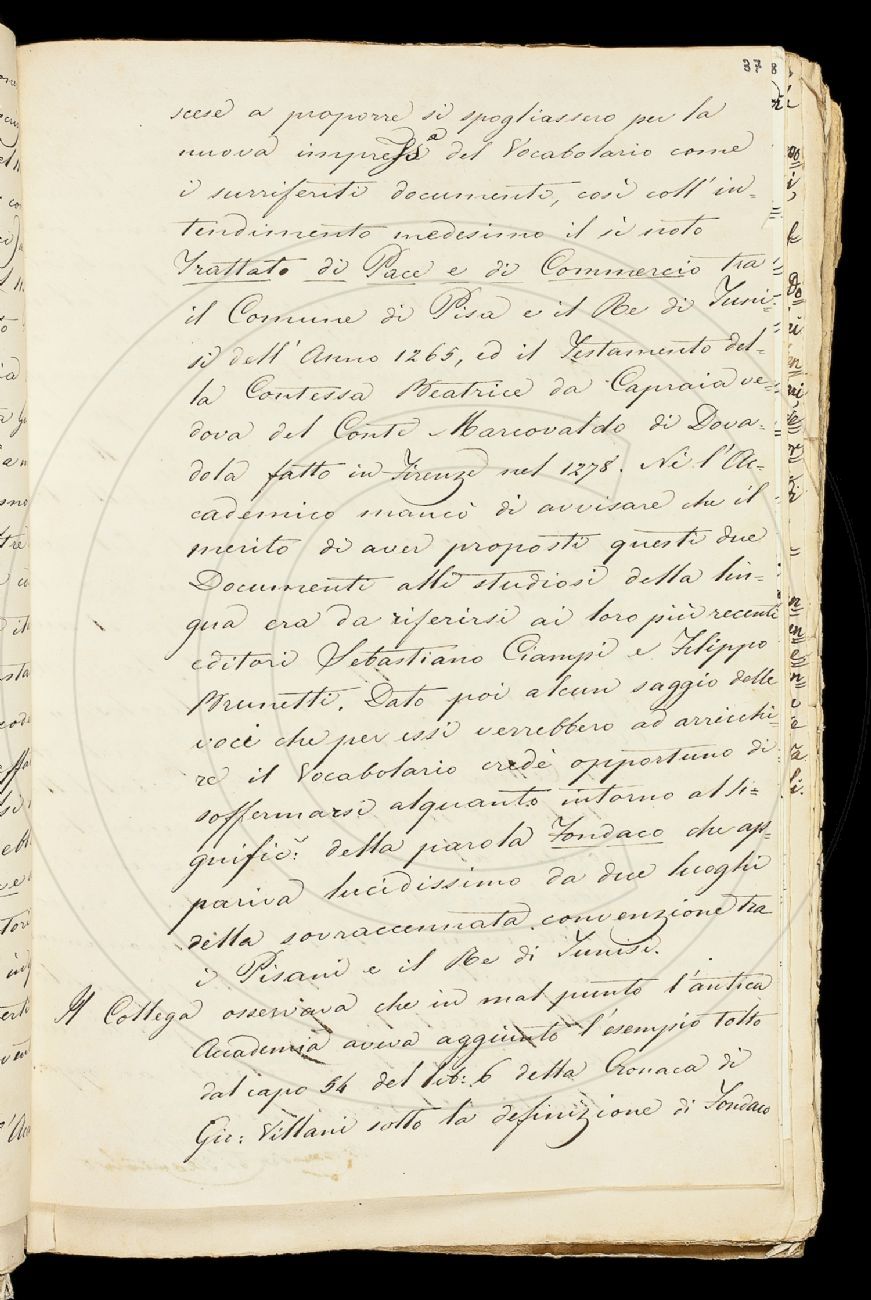 378
scese a proporre si spogliassero per la
nuova impress.ª del Vocabolario come
i surriferiti documenti, così coll' in=
tendimento medesimo il sì noto
Trattato di Pace e di Commercio tra
il Comune di Pisa e il Re di Tuni=
si dell' Anno 1265, ed il Testamento del=
la Contessa Beatrice da Capraia ve=
dova del Conte Marcovaldo di Dova=
dola fatto in Firenze nel 1278. Nè l'Ac=
cademico mancò di avvisare che il
merito di aver proposti questi due
Documenti alli studiosi della lin=
gua era da riferirsi ai loro più recenti
editori Sebastiano Ciampi e Filippo
Brunetti. Dato poi alcun saggio delle
voci che per essi verrebbero ad arricchi=
re il Vocabolario credè opportuno di
soffermarsi alquanto intorno al si=
gnific: della parola Fondaco che ap=
pariva lucidissimo da due luoghi
della sovraccennata convenzione tra
i Pisani e il Re di Tunisi.
Il Collega osservava che in mal punto l'antica
Accademia aveva aggiunto l'esempio tolto
dal capo 54 del lib: 6 della Cronaca di
Gio: Villani sotto la definizione di Fondaco